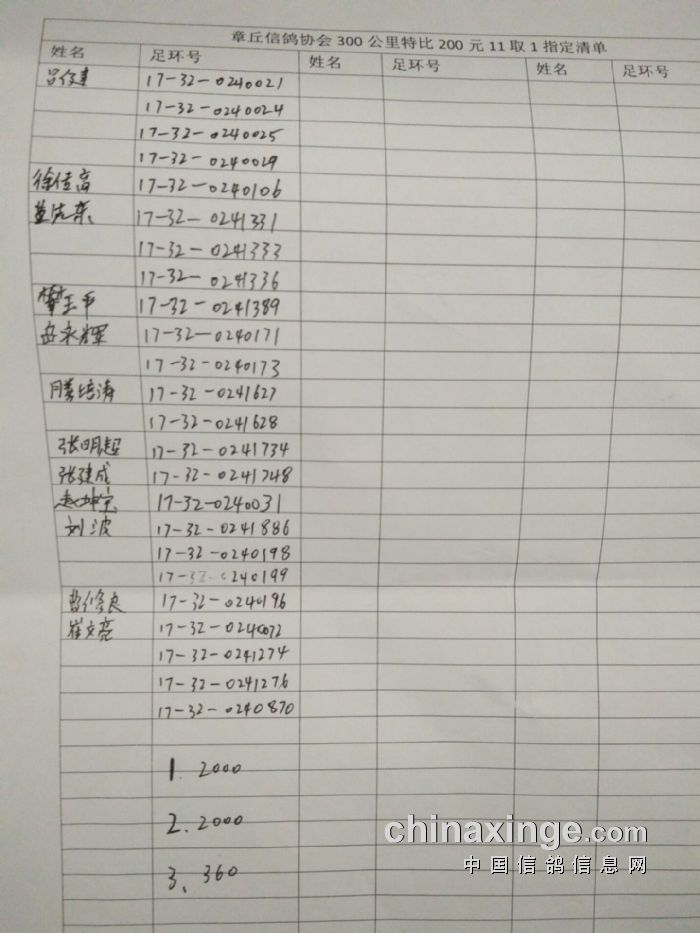 章丘信鸽协会300公里特比200元11取1指定清单
姓名 足环号 姓名 足环号 姓名 足环号
吕 17-32-0240021
17-32-0240024
17-32-0240025
17-32-0240029
徐佳高 17-32-0240106
17-32-0241331
17-32-0241333
17-32-0241336
17-32-0241389
岳永辉 17-32-0240171
17-32-0240173
滕培涛 17-32-0241627
17-32-0241628
张明超 17-32-0241734
张建成 17-32-0241748
赵坤宗 17-32-0240031
刘波 17-32-0241886
17-32-0240198
17-32-0240199
曹修良 17-32-0240196
崔文亮 17-32-0240072
17-32-0241274
17-32-0241276
17-32-0240870
1. 2000
2. 2000
3、360
chinaxinge.com
中国信鸽信息网